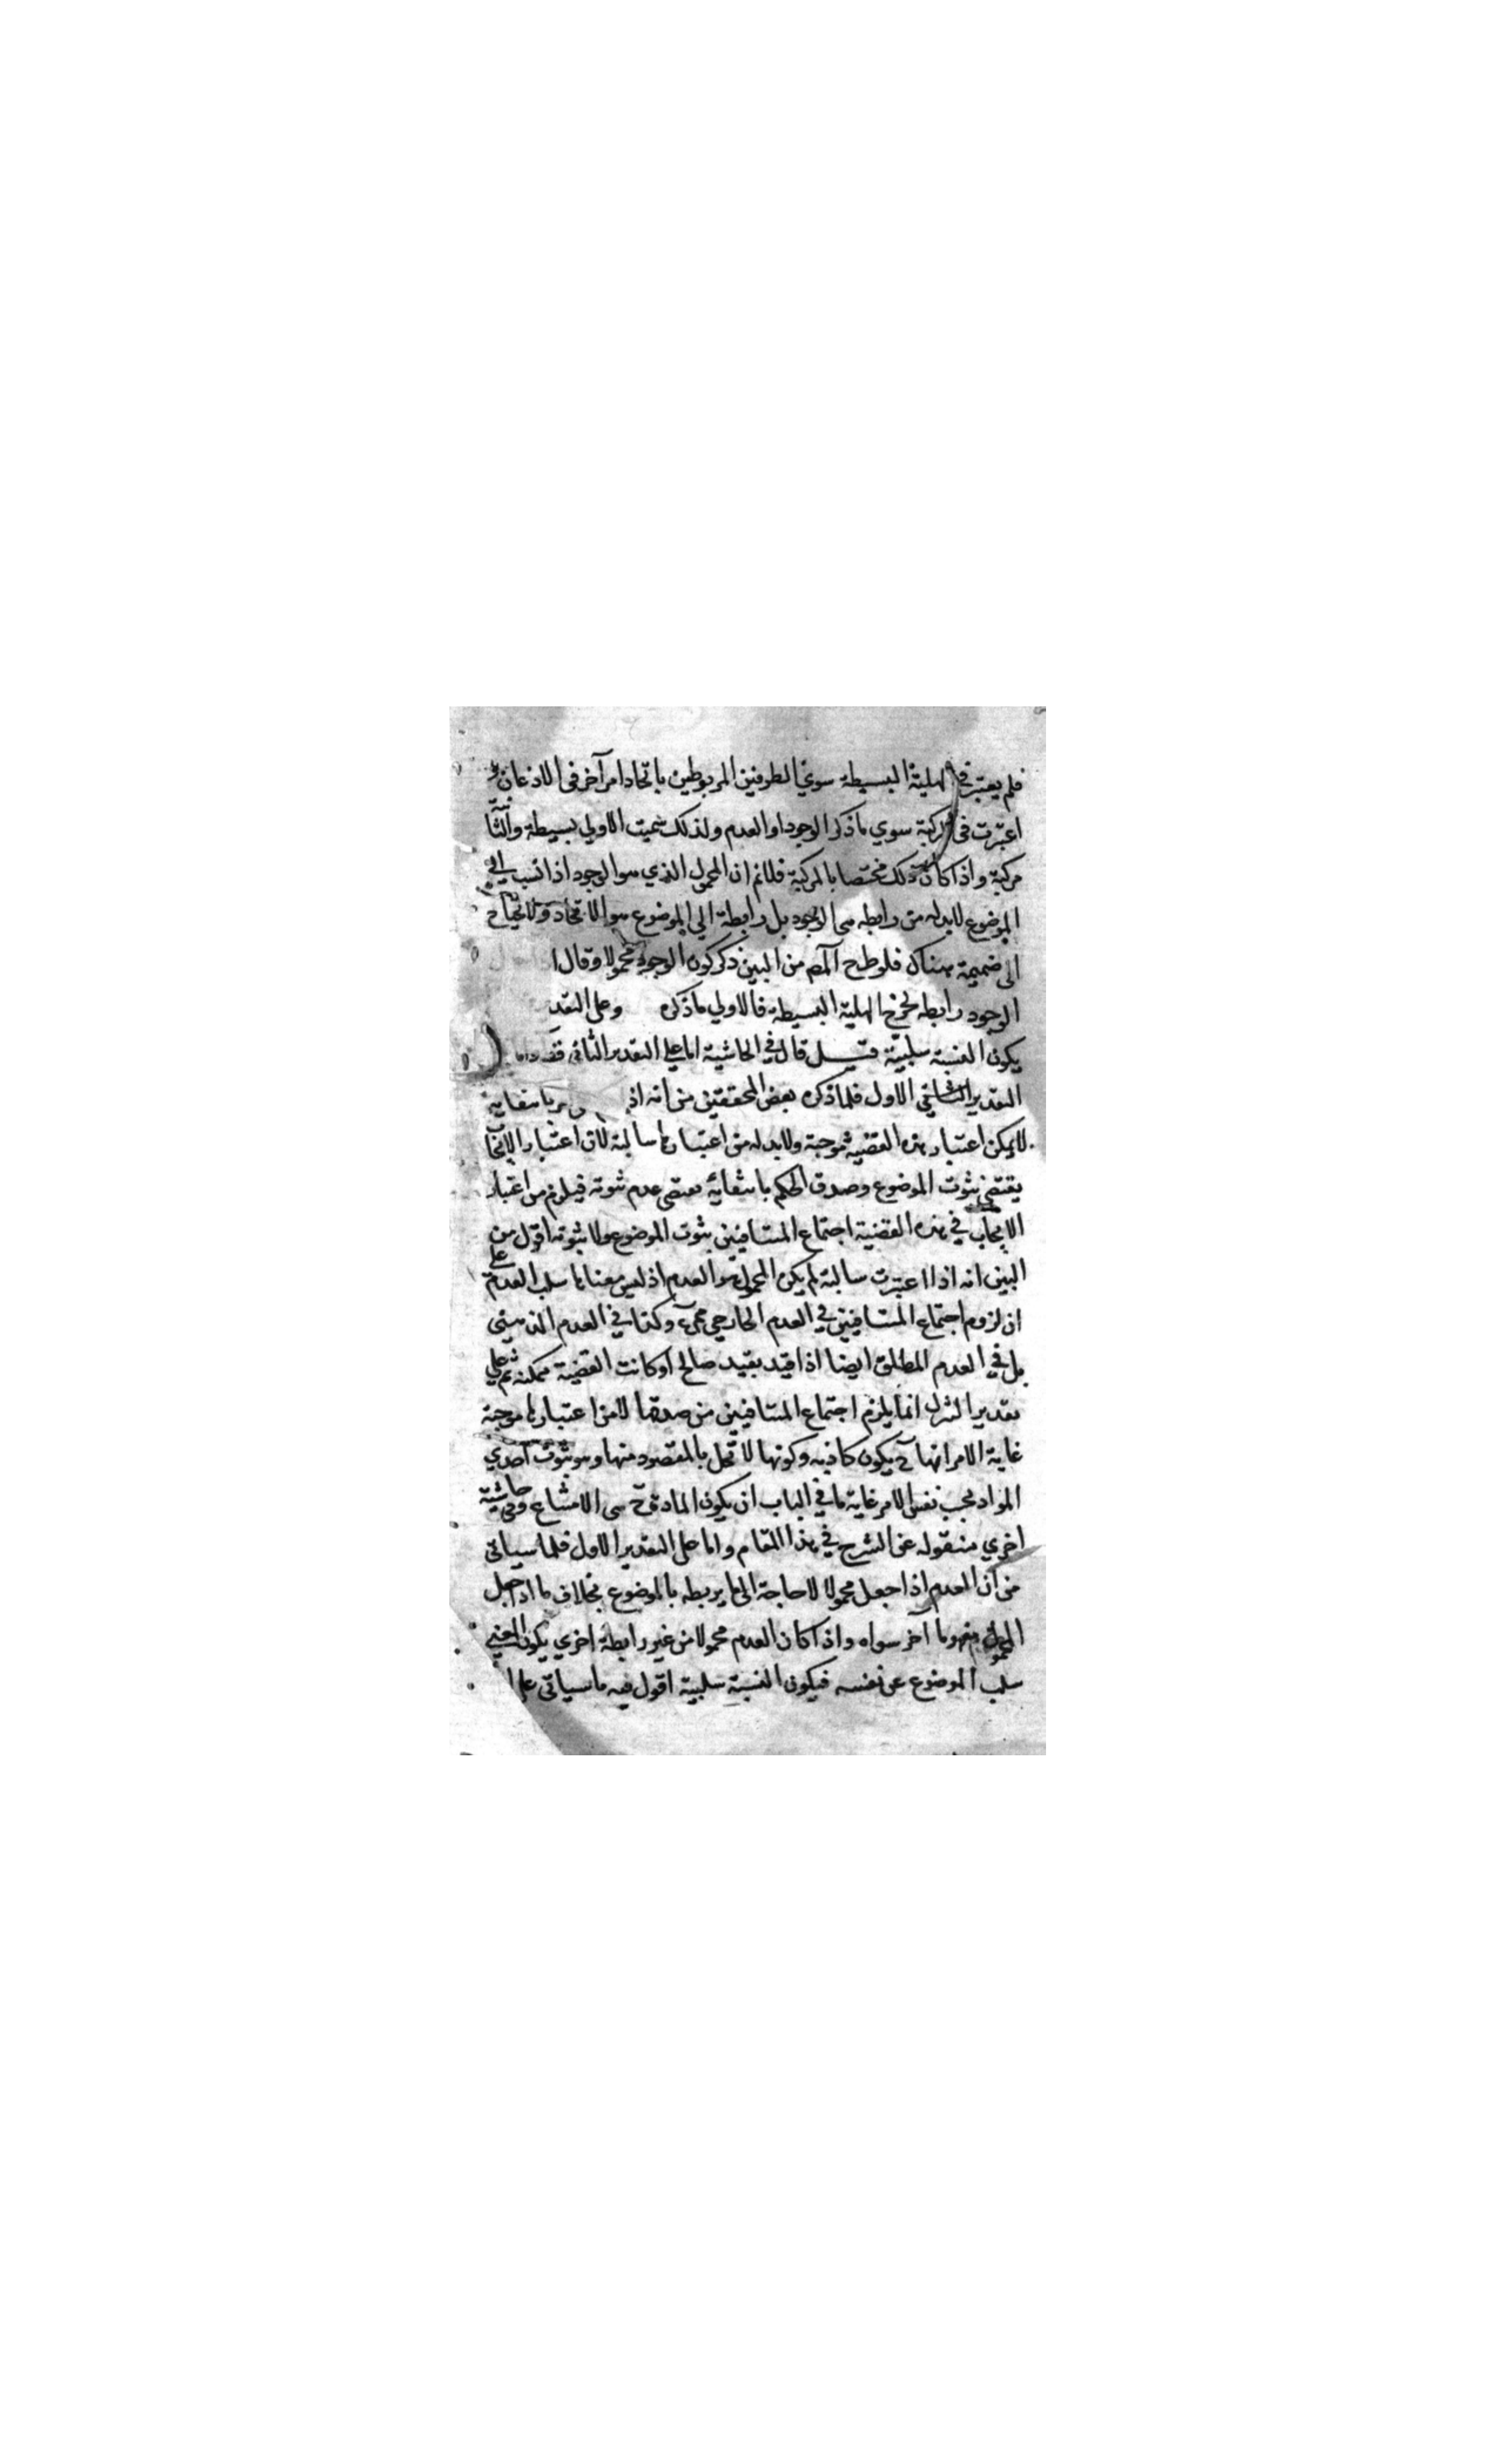 فلم يعتبر في الهلية البسيطة سوي الطرفين المربوطين باتحاد امر آخر في الاذعان و
اعتبرت في المركبة سوي ما ذكر الوجود او العدم ولذلك سميت الاولي بسيطة والثانية
مركبة واذا كان ذلك مختصا بالمركبة فلانم ان المحمول الذي هو الوجود اذا نسب الي
الموضوع لابد له من رابطه هي الوجود بل رابطة الي الموضوع هو الاتحاد ولا يحتاج
الي ضميمة هناك فلو طرح المص من البين ذكر كون الوجود محمولا وقال
الوجود رابطه لخرج الهلية البسيطة فالاولي ما ذكره وعلي التقد
يكون النسبة سلبية قيل قال في الحاشية اما علي التقدير الثاني فقد واما
التقدير الاول فلما ذكره بعض المحققين من انه اذ بانتفايه
لا يمكن اعتبار هذه القضية موجبة ولابد له من اعتبارها سالبة لان اعتبار الايجا
يقتضي ثبوت الموضوع وصدق الحكم بانتفائه يقتضي عدم ثبوته فيلزم من اعتبار
الايجاب في هذه القضية اجتماع المتنافيين ثبوت الموضوع ولا ثبوته اقول من
البين انه اذا اعتبرت سالبة لم يكن المحمول هو العدم اذ ليس معناها سلب العدم علي
ان لزوم اجتماع المتنافيين في العدم الخارجي مم وكذا في العدم الذهني
بل في العدم المطلق ايضا اذا قيد بقيد صالح او كانت القضية ممكنه ثم علي
تقدير التنزل انما يلزم اجتماع المتنافيين من صدقها لا من اعتبارها موجبة
غاية الامر انها ح يكون كاذبه وكونها لا تخل بالمقصود منها وهو ثبوت احدي
المواد بحسب نفس الامر غاية ما في الباب ان يكون المادة ح هي الامتناع وفي حاشية
اخري منقوله عن الشرح في هذا المقام واما علي التقدير الاول فلما سياتي
من ان العدم اذا جعل محمولا لا حاجة الي ما يربطه بالموضوع بخلاف ما اذا جعل
المحمول مفهوما آخر سواه واذا كان العدم محمولا من غير رابطة اخري يكون المعني
سلب الموضوع عن نفسه فيكون النسبة سلبية اقول فيه ما سياتي علي